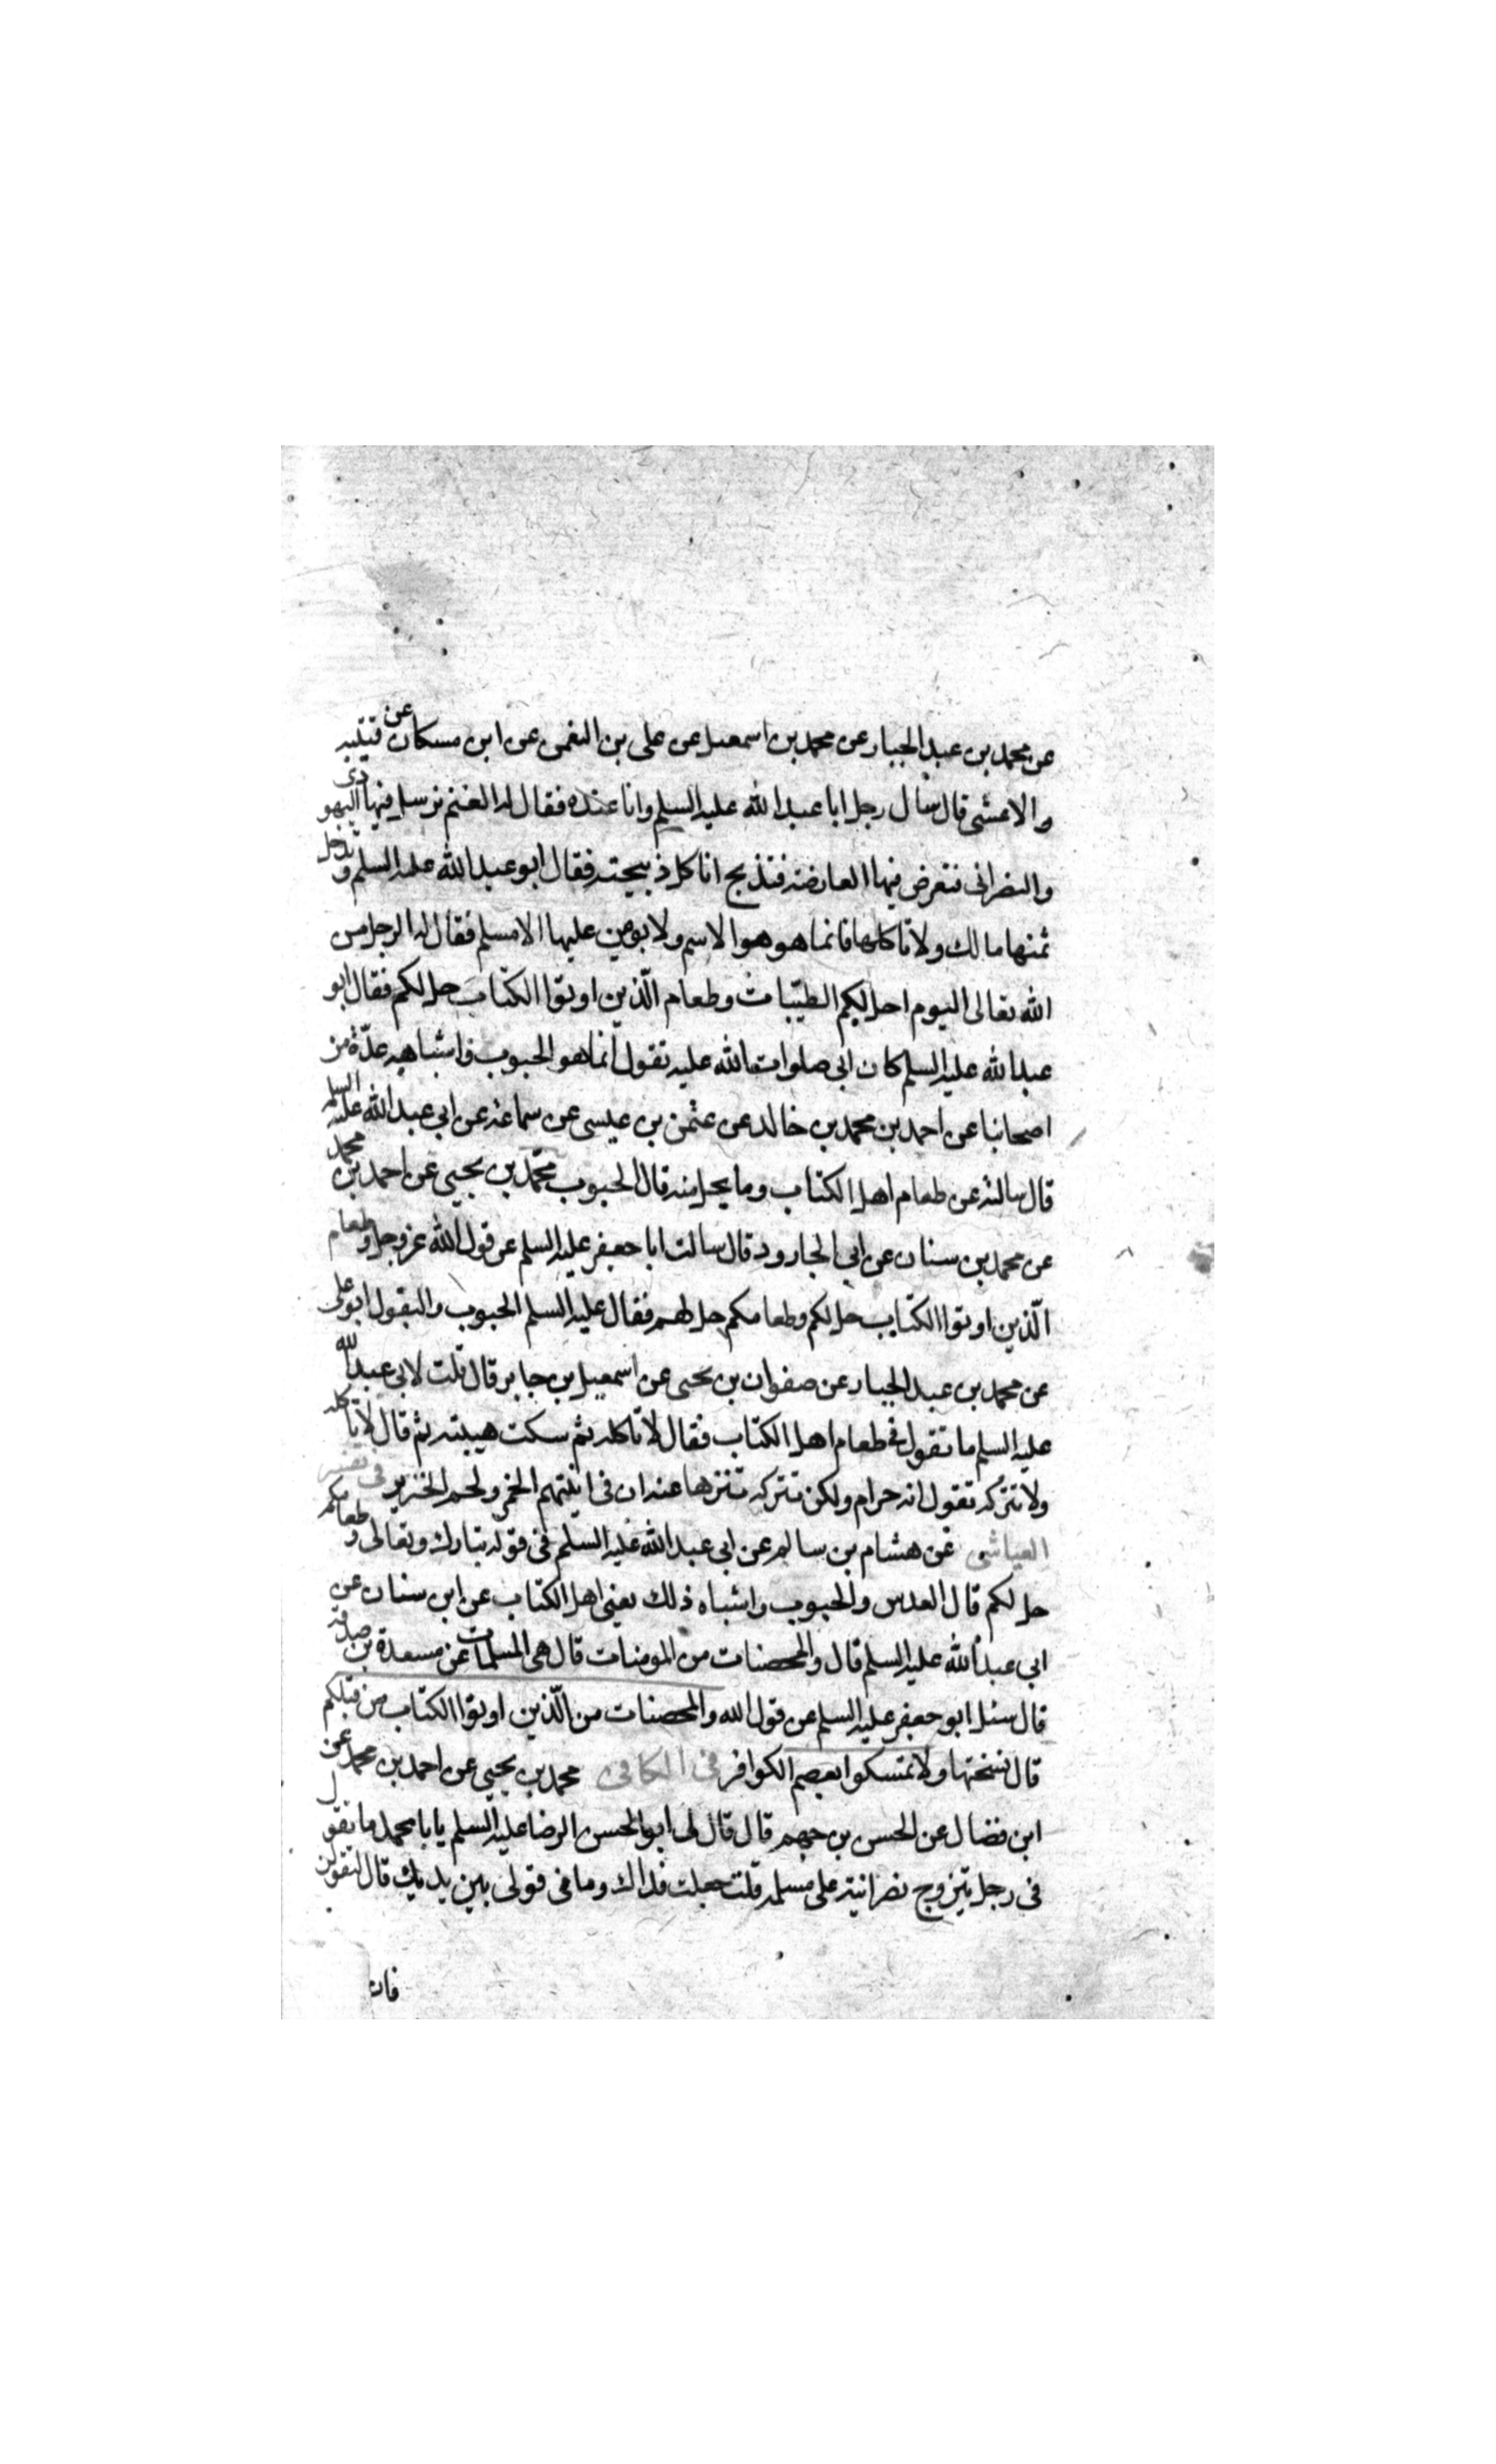 عن محمد بن عبد الجبار عن محمد بن اسمعيل عن على بن النعمن عن ابن مسكان عن قتيبه
الاعشى قال سال رجل ابا عبد الله عليه السلم وانا عنده فقال له الغنم نرسل فيها اليهودى
والنصرانى فتعرض فيها العارضه فتذبح اناكل ذبيحته فقال ابو عبد الله عليه السلم لا تدخل
ثمنها مالك ولا تاكلها فانما هو هو الاسم ولا يومن عليها الا مسلم فقال له الرجل من
الله تعالى اليوم احل لكم الطيّبات وطعام الّذين اوتوا الكتاب حل لكم فقال ابو
عبد الله عليه السلم كان ابى صلوات الله عليه تقول انما هو الحبوب واشباهه عدّة من
اصحابنا عن احمد بن محمد بن خالد عن عثمن بن عيسى عن سماعه عن ابى عبد الله عليه السلم
قال سالته عن طعام اهل الكتاب وما يحل منه قال الحبوب محمّد بن يحيى عن احمد بن محمد
عن محمد بن سنان عن ابى الجارود قال سالت ابا جعفر عليه السلم عن قول الله عز وجل وطعام
الّذين اوتوا الكتاب حل لكم وطعامكم حل لهم فقال عليه السلم الحبوب والبقول ابو على
عن محمد بن عبد الجبار عن صفوان بن يحيى عن اسمعيل بن جابر قال قلت لابى عبد الله
عليه السلم ما تقول فى طعام اهل الكتاب فقال لا تاكله ثم سكت هيبته ثم قال لا تاكله
ولا تتركه تقول انه حرام ولكن تتركه تنزها عنه ان فى انيتهم الخمر ولحم الخنزير فى تفسير
العياشى عن هشام بن سالم عن ابى عبد الله عليه السلم فى قوله تبارك وتعالى وطعامكم
حل لكم قال العدس والحبوب واشباه ذلك يعنى اهل الكتاب عن ابن سنان عن
ابى عبد الله عليه السلم قال والمحصنات من المومنات قال هى المسلمات عن مسعدة بن صدقه
قال سئل ابو جعفر عليه السلم عن قول الله والمحصنات من الّذين اوتوا الكتاب من قبلكم
قال نسختها ولا تمسكوا بعصم الكوافر فى الكافى محمد بن يحيى عن احمد بن محمد عن
ابن فضال عن الحسن بن جهم قال قال لى ابو الحسن الرضا عليه السلم يا با محمد ما تقول
فى رجل يتزوج نصرانية على مسلمه قلت جعلت فداك وما فى قولى بين يديك قال لتقولن
فان